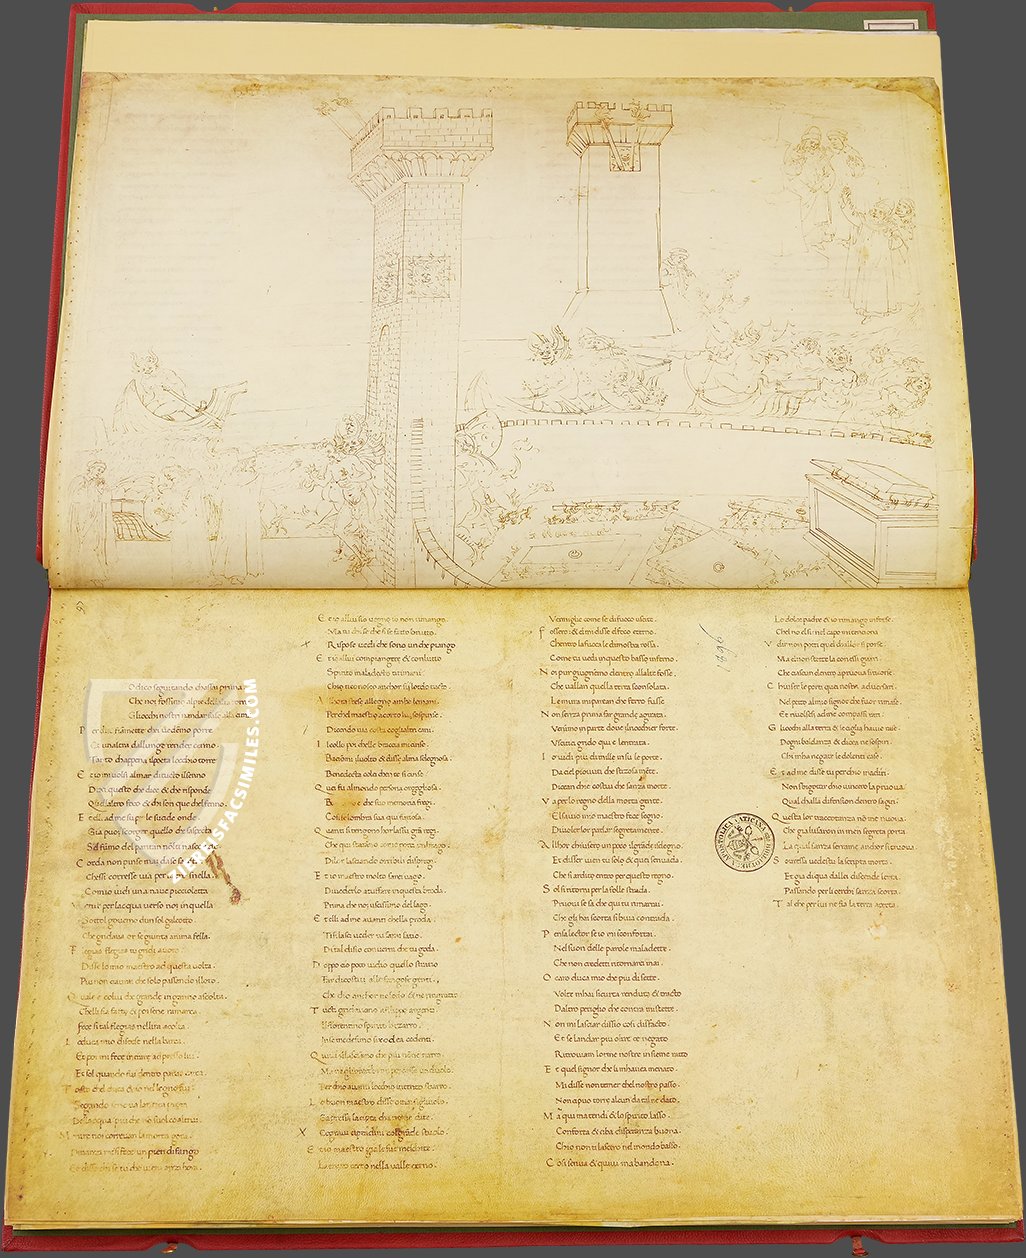 97
O dico seguitando chassai prima
Che noi fossimo alpie dellalta torre
Gliocchi nostri nandar suso alla cima
Per due fiammette che vedemo porre
Et unaltra dallunge render cenno
Tanto chappena il potea locchio torre
E t io mi volsi almar di tucto ilsenno
Dixi questo che dice & che risponde
Quellaltro foco & chi son que chel fenno
E t elli ad me su per le sucide onde
Gia puoi scorger quello che saspecta
Sel fumo del pantan nol ti nasconde
C orda non pinse mai da se saetta
Chessi corresse via per laere snella
Comio vidi una nave piccioletta
V enir per lacqua verso noi in quella
Sottol governo dun sol galeotto
Che gridava or se giunta anima fella
F legias flegias tu gridi a voto
Disse lo mio signore ad questa volta
Piu non ci avrai che solo passando illoto
Q uale e colui che grande inganno ascolta
Chelli sia fatto & poi sene ramarca
Fecesi tal flegias nellira accolta
L o duca mio discese nella barca
Et poi mi fece intrare appresso lui
Et sol quando fui dentro parve carca
T osto chel duca & io nel legno fui
Segando sene va lantica prora
Dellacqua piu che non suol con altrui
M entre noi corravan la morta gora
Dinanzi mi si fece un pien di fango
Et disse chi se tu che vieni anzi hora
E t io allui sio vegno io non rimango
Ma tu chi se che si se fatto brutto
Rispose vedi che sono un che piango
E t io allui con piangere & con lutto
Spirito maladecto ti rimani
Chio ti conosco anchor sia lordo tucto
Allhora stese allegno ambe le mani
Perchel maestro accorto lui sospinse
Dicendo via costa cogli altri cani
I l collo poi colle braccia mi cinse
Baciomi iluolto & disse alma sdegnosa
Benedecta colei chen te si cinse
Q uei fu almondo persona orgogliosa
Bonta non e che sua memoria fregi
Cosi selombra sua qui furiosa
Q uanti si tengono hor lassu gra regi
Che qui staranno come porci in brago
Di se lasciando orribili dispregi
E t io maestro molto sarei vago
Di vederlo attuffare in questa broda
Prima che noi uscissimo del lago
E t elli ad me avanti chella proda
Ti si lasci veder tu sarai satio
Di tal disio converra che tu goda
D oppo cio poco vidio quello stratio
Far di costui alle fangose genti
Che dio anchor ne lodo & ne ringratio
T ucti gridavano a filippo argenti
Il fiorentino spirito bizzarro
In se medesimo si rodea co denti
Q uivi illasciamo che piu non ne narro
Ma negliorecchi mi percosse un duolo
Per chio avanti locchio intento sbarro
L o buon maestro disse omai figliuolo
Sappressa la cipta cha nome dite
Co gravi ciptadini col grande stuolo
E t io maestro gia le sue meschite
La entro certo nella valle cerno
Vermiglie come se di fuoco uscite
F ossero & elmi disse el foco eterno
Chentro laffuoca le dimostra rossa
Come tu vedi in questo basso inferno
N oi pur giugnemo dentro allalte fosse
Che vallan quella terra sconsolata
Le mura mi parean che ferro fusse
N on senza prima far grande agirata
Venimo in parte dove ilnocchier forte
Usciteci grido qui e lentrata
I o vidi piu di mille in su le porte
Da ciel piovuti che stizosamente
Dicean chie costui che sanza morte
V a per lo regno della morta gente
El savio mio maestro fece segno
Di voler lor parlar segretamente
A llhor chiusero un poco ilgrande disdegno
Et disser vien tu solo & quei sen vada
Che si ardito entro per questo regno
S ol si ritorni per la folle strada
Pruovi se sa che qui tu rimarrai
Che gli hai scorta sibuia contrada
P ensa lector se io mi sconfortai
Nel suon delle parole maladette
Che non credetti ritornarci mai
O caro duca mio che piu di sette
Volte mhai sicurta renduta & tracto
Daltro periglio che contra mi stette
N on mi lasciar dissio cosi disfacto
Et se landar piu oltre ce negato
Ritroviam lorme nostre insieme ratto
E t quel signor che li mhavea menato
Mi disse non temer chel nostro passo
Non ci puo torre alcun da tal ne dato
M a qui mattendi & lo spirito lasso
Conforta & ciba disperanza buona
Chio non ti lascero nel mondo basso
C osi sen va & quivi mabandona
1896
Lo dolce padre & io rimango inforse
Chel no el si nel capo mi tenciona
V dir non potti quel challor si porse
Ma el non stette la con essi guari
Che ciascun dentro apruova si ricorse
C hiuser le porti quei nostri adversari
Nel petto almio signor che fuor rimase
Et rivolsesi ad me con passi rari
G liocchi alla terra & le ciglia havie rase
Dogni baldanza & dicea ne sospiri
Chi mha negate le dolenti case
E t ad me disse tu perchio madiri
Non sbigottir chio vincero la pruova
Qual challa difension dentro sagiri
Q uesta lor tracotanza no ne nuova
Che gia lusaron in men segreta porta
La qual sanza serrame anchor si truova
S ovressa vedestu la scripta morta
Et gia di qua dallei discende lerta
Passando per li cerchi senza scorta
T al che per lui ne fia la terra aperta
BIBLIOTHECA APOSTOLICA VATICANA
ZIEREISFACSIMILES.COM